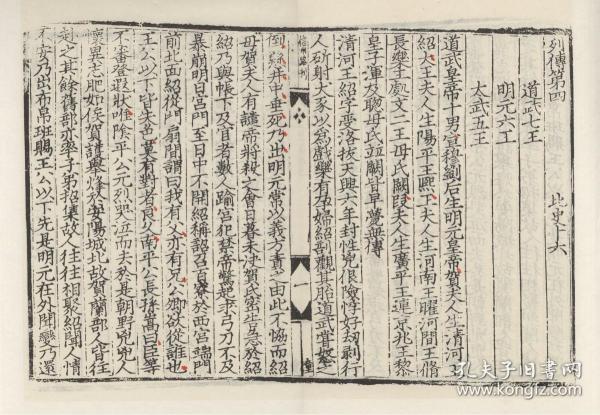 列傳第四　北史十六
道武七王
明元六王
太武五王
道武皇帝十男宣穆劉后生明元皇帝賀夫人生清河王
紹大王夫人生陽平王熙王夫人生河南王曜河間王脩
長樂王處文二王母氏闕段夫人生廣平王連京兆王黎
皇子渾及聰母氏並闕皆早薨無傳
清河王紹字受洛拔天興六年封性兇佷險悖好劫剝行
人斫射犬豕以爲戲樂有孕婦紹剖觀其胎道武嘗怒
倒縣井中垂死乃出明元常以義方責之由此不協而紹
母賀夫人有譴帝將殺之會日暮未決賀氏密告急於紹
紹乃與帳下及宦者數人踰宮犯禁帝驚起求弓刀不及
暴崩明日宮門至日中不開紹稱詔召百寮於西宮端門
前北面紹從門扇間謂曰我有父亦有兄公卿欲從誰也
王公以下皆失色莫有對者良久南平公長孫嵩曰臣等
不審登遐狀唯陰平公元烈哭泣而去於是朝野兇兇人
懷異志肥如侯賀護舉烽於安陽城北故賀蘭部人皆往
赴之其餘舊部亦率子弟招集故人往往相聚紹聞人情
不安乃出布帛班賜王公以下先是明元在外聞變乃還
信州路刊
一
孔夫子旧书网